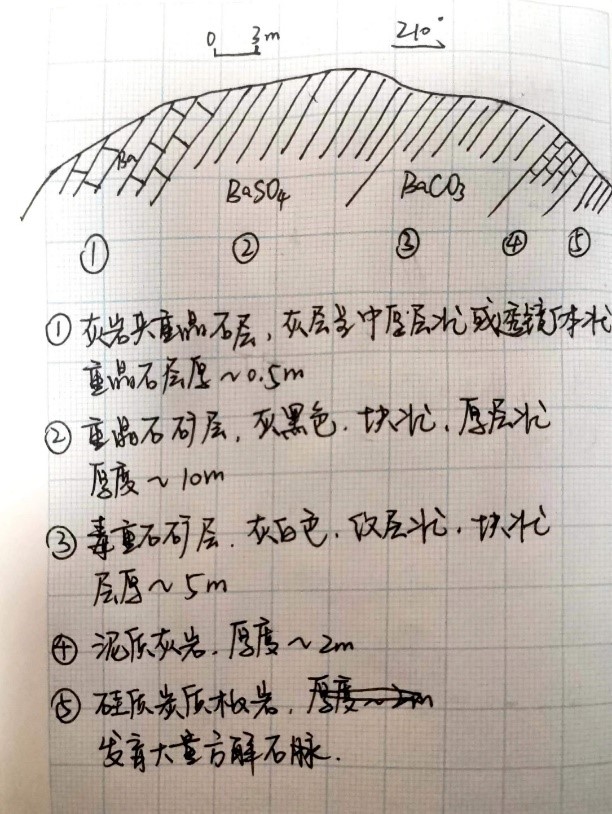 0 3m 210°
Ba
BaSO4 BaCO3
① ② ③ ④ ⑤
① 灰岩夹重晶石层,灰层呈中厚层状或透镜体状
重晶石层厚~0.5m
② 重晶石矿层,灰黑色、块状、厚层状
厚度~10m
③ 毒重石矿层、灰白色、纹层状、块状
层厚~5m
④ 泥质灰岩、厚度~2m
⑤ 硅质炭质板岩,
发育大量方解石脉.